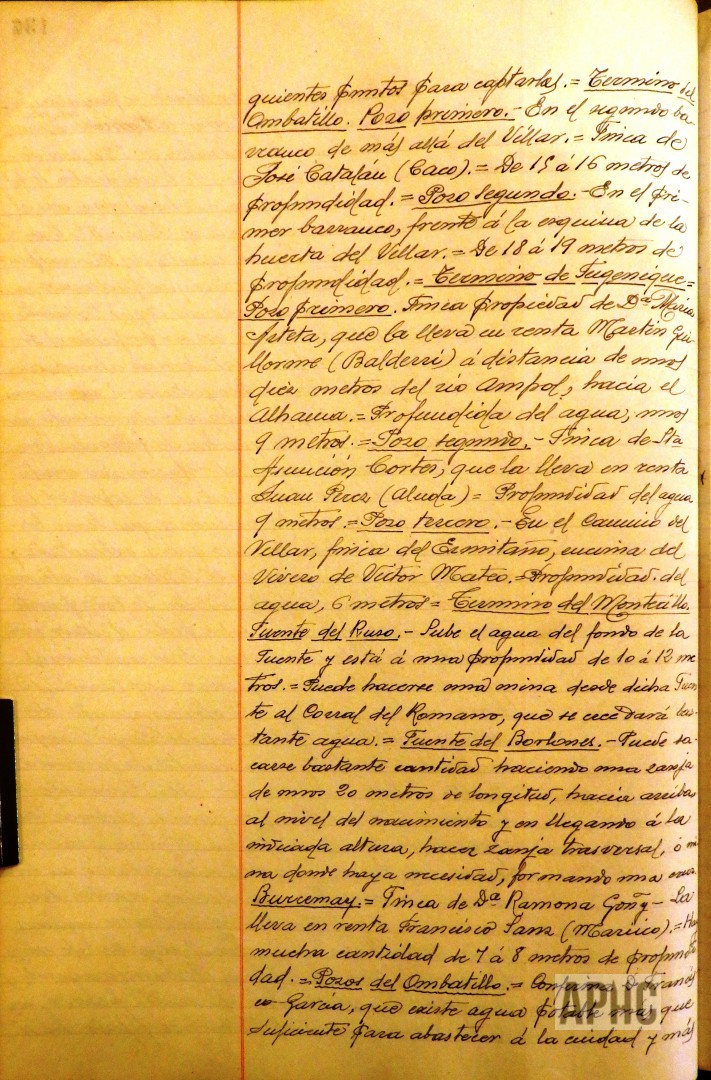 quientes puntos para captarlas.= Termino del
Ombatillo. Pozo primero.- En el segundo ba-
rranco de más allá del Villar.= Finca de
José Catalán (Caco).= De 15 á 16 metros de
profundidad.= Pozo segundo.- En el pri-
mer barranco, frente á la esquina de la
huerta del Villar.= De 18 á 19 metros de
profundidad.= Termino de Fugenique=
Pozo primero. Finca propiedad de Dª Maria
Arteta, que la lleva en renta Martín Gui
llorme (Balderri) á distancia de unos
diez metros del río Ampol, hacia el
Alhama.= Profundida del agua, unos
9 metros.= Pozo segundo.- Finca de
Asunción Cortés, que la lleva en renta
Juan Perez (Aluda)= Profundidad del agua
9 metros.= Pozo tercero.- En el Camino del
Villar, finca del Ermitaño, encima del
Vivero de Victor Mateo.= Profundidad. del
agua, 6 metros= Termino del Montecillo.
Fuente del Ruso.- Sube el agua del fondo de la
Fuente y está á una profundidad de 10 á 12 me
tros.= Puede hacerse una mina desde dicha Fuen
te al Corral del Romano, que se dará bas-
tante agua.= Fuente del Borbones.- Puede sa-
carse bastante cantidad haciendo una zanja
de unos 20 metros de longitud, hacia arriba
al nivel del nacimiento y en llegando á la
indicada altura, hacer zanja trasversal, ó mi
na donde haya necesidad, formando una
Burcemay.= Finca de Dª Ramona Goñy- La
lleva en renta Francisco Sanz (Marüco).= Hay
mucha cantidad de 7 á 8 metros de profundi
dad.= Pozos del Ombatillo.= D. Francis
co García, que existe agua potable mas que
suficiente para abastecer á la ciudad y más
APHC